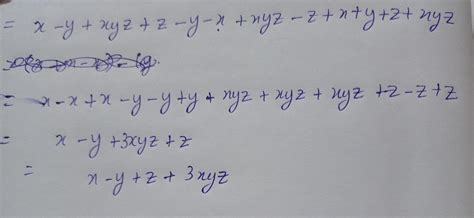 = x - y + xyz + z - y - x + xyz - z + x + y + z + xyz
= x - x + x - y - y + y + xyz + xyz + xyz + z - z + z
= x - y + 3xyz + z
= x - y + z + 3xyz